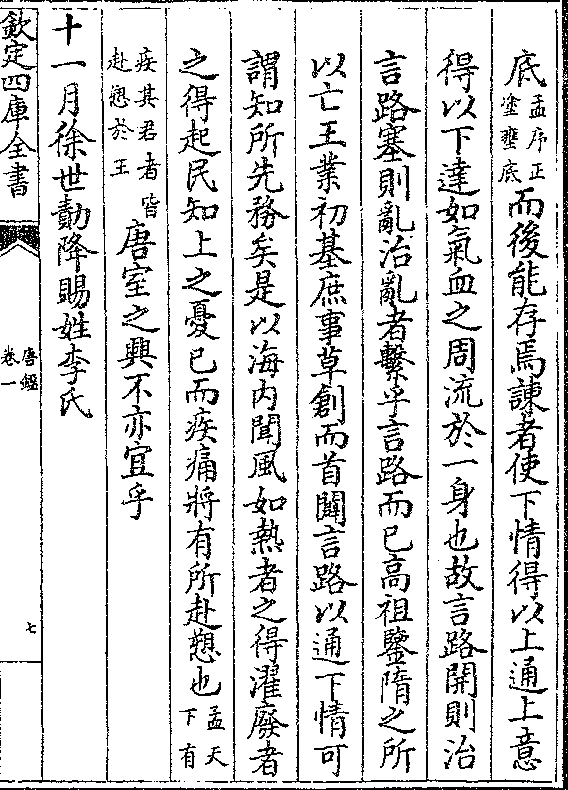 底孟序正塗壅底而後能存焉諫者使下情得以上通上意
得以下達如氣血之周流於一身也故言路開則治
言路塞則亂治亂者繫乎言路而已高祖鑒隋之所
以亡王業初基庶事草創而首闢言路以通下情可
謂知所先務矣是以海内聞風如熱者之得濯廢者
之得起民知上之憂已而疾痛將有所赴愬也孟天下有
疾其君者皆赴愬於王唐室之興不亦宜乎
十一月徐世勣降賜姓李氏
欽定四庫全書
唐鑑
卷一
七